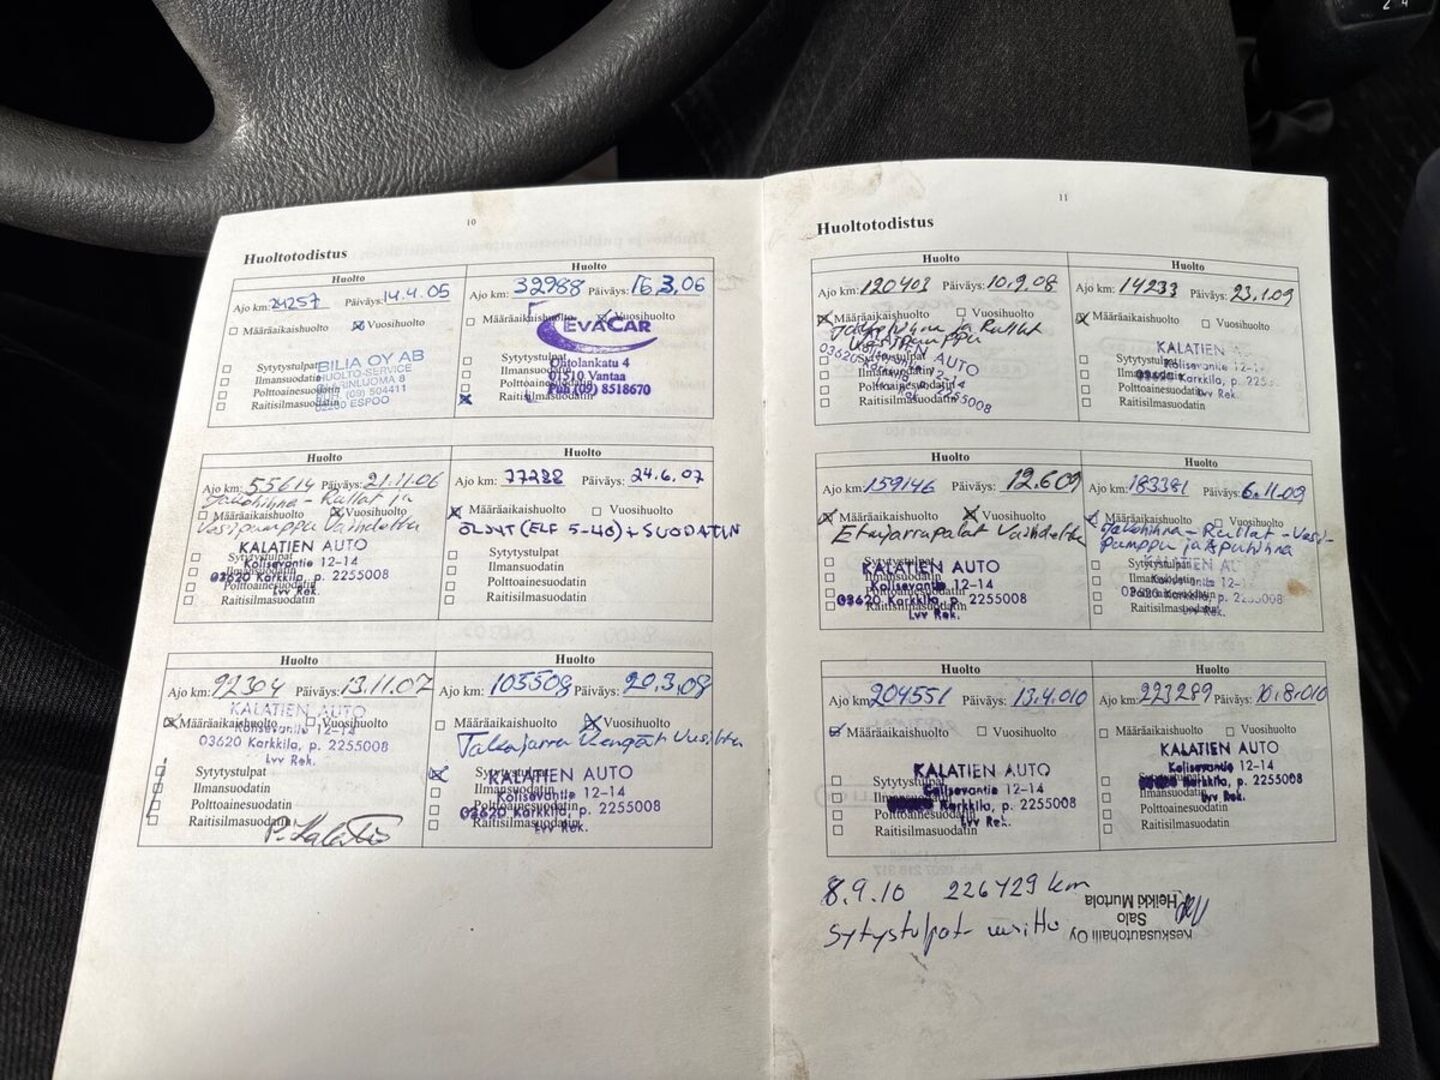 2 4
10
Huoltotodistus
Huolto
Ajo km: 24257 Päiväys: 14.4.05
Määräaikaishuolto Vuosihuolto
BILIA OY AB
HUOLTO-SERVICE
02200 ESPOO
Sytytystulpat
Ilmansuodatin
Polttoainesuodatin
Raitisilmasuodatin
Huolto
Ajo km: 32988 Päiväys: 16.3.06
Määräaikaishuolto Vuosihuolto
EVACAR
01510 Vantaa
Puh (09) 8518670
Sytytystulpat
Ilmansuodatin
Polttoainesuodatin
Raitisilmasuodatin
Huolto
Ajo km: 55614 Päiväys: 21.11.06
Jakohihna - Rullat ja
Määräaikaishuolto Vuosihuolto
Vesipumppu Vaihdettu
KALATIEN AUTO
Kolisevantie 12-14
03620 Karkkila, p. 2255008
Lvv Rek.
Sytytystulpat
Ilmansuodatin
Polttoainesuodatin
Raitisilmasuodatin
Huolto
Ajo km: 77288 Päiväys: 24.6.07
Määräaikaishuolto Vuosihuolto
ÖLJYT (ELF 5-40) + SUODATIN
Sytytystulpat
Ilmansuodatin
Polttoainesuodatin
Raitisilmasuodatin
Huolto
Ajo km: 92304 Päiväys: 13.11.07
KALATIEN AUTO
Määräaikaishuolto Vuosihuolto
Kolisevantie 12-14
03620 Karkkila, p. 2255008
Lvv Rek.
Sytytystulpat
Ilmansuodatin
Polttoainesuodatin
Raitisilmasuodatin
Huolto
Ajo km: 105508 Päiväys: 20.3.08
Määräaikaishuolto Vuosihuolto
Takajarru kengät uusittu
Sytytystulpat
KALATIEN AUTO
Kolisevantie 12-14
03620 Karkkila, p. 2255008
Lvv Rek.
Ilmansuodatin
Polttoainesuodatin
Raitisilmasuodatin
11
Huoltotodistus
Huolto
Ajo km: 120403 Päiväys: 10.9.08
Määräaikaishuolto Vuosihuolto
Jakohihna ja Rullat
Vesipumppu
KALATIEN AUTO
Sytytystulpat
Ilmansuodatin
Polttoainesuodatin
Raitisilmasuodatin
Huolto
Ajo km: 14233 Päiväys: 23.1.09
Määräaikaishuolto Vuosihuolto
KALATIEN
Kolisevantie 12-14
03620 Karkkila, p.
Lvv Rek.
Sytytystulpat
Ilmansuodatin
Polttoainesuodatin
Raitisilmasuodatin
Huolto
Ajo km: 159146 Päiväys: 12.609
Määräaikaishuolto Vuosihuolto
Etujarrupalat Vaihdettu
KALATIEN AUTO
Kolisevantie 12-14
03620 Karkkila, p. 2255008
Lvv Rek.
Sytytystulpat
Ilmansuodatin
Polttoainesuodatin
Raitisilmasuodatin
Huolto
Ajo km: 183381 Päiväys: 6.11.09
Määräaikaishuolto Vuosihuolto
Jakohihna - Rullat - Vesi-
pumppu ja Apuhihna
KALATIEN
Kolisevantie 12-
03620 Karkkila, p.
Lvv Rek.
Sytytystulpat
Ilmansuodatin
Polttoainesuodatin
Raitisilmasuodatin
Huolto
Ajo km: 204551 Päiväys: 13.4.010
Määräaikaishuolto Vuosihuolto
KALATIEN AUTO
Kolisevantie 12-14
Karkkila, p. 2255008
Lvv Rek.
Sytytystulpat
Ilmansuodatin
Polttoainesuodatin
Raitisilmasuodatin
Huolto
Ajo km: 223289 Päiväys: 10.8.010
Määräaikaishuolto Vuosihuolto
KALATIEN AUTO
Kolisevantie 12-14
Karkkila, p. 2255008
Lvv Rek.
Sytytystulpat
Ilmansuodatin
Polttoainesuodatin
Raitisilmasuodatin
8.9.10 226429 km
Sytytystulpat uusittu
Keskusautohalli Oy
Salo
Heikki Murtola